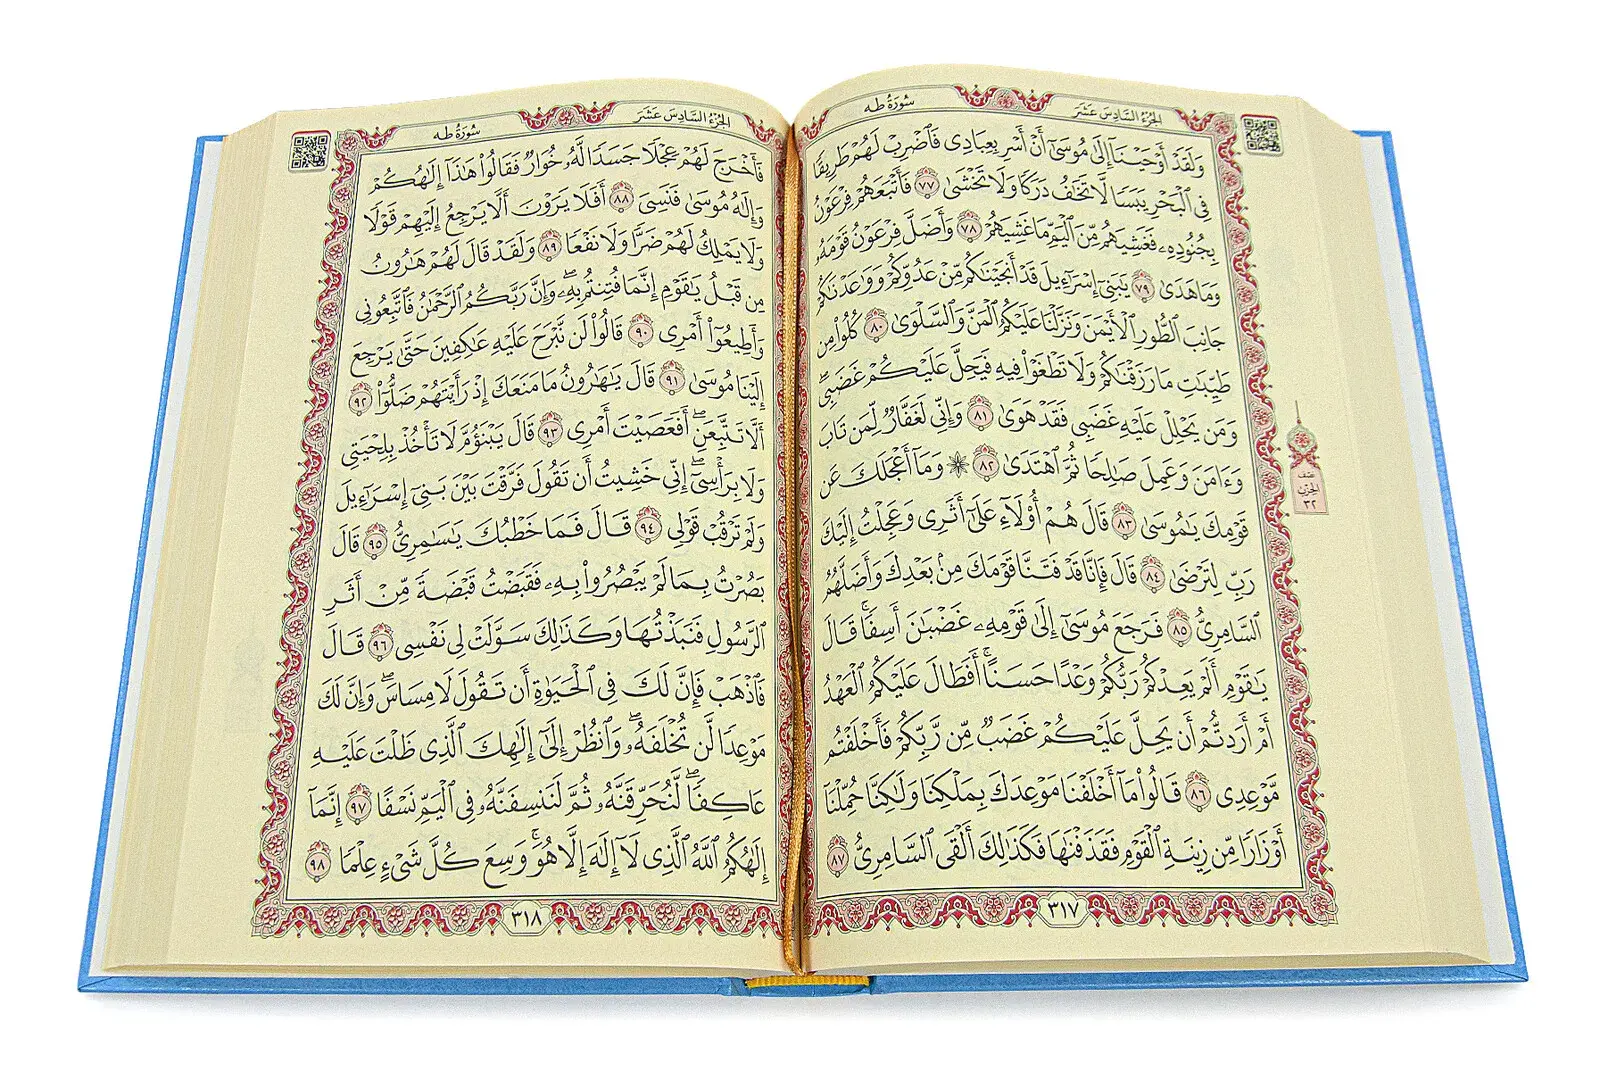 الجُزْءُ السَّادِسَ عَشَرَ
سُورَةُ طه
وَلَقَدْ أَوْحَيْنَا إِلَىٰ مُوسَىٰٓ أَنْ أَسْرِ بِعِبَادِى فَٱضْرِبْ لَهُمْ طَرِيقًا
فِى ٱلْبَحْرِ يَبَسًا لَّا تَخَـٰفُ دَرَكًا وَلَا تَخْشَىٰ ٧٧ فَأَتْبَعَهُمْ فِرْعَوْنُ
بِجُنُودِهِۦ فَغَشِيَهُم مِّنَ ٱلْيَمِّ مَا غَشِيَهُمْ ٧٨ وَأَضَلَّ فِرْعَوْنُ قَوْمَهُۥ
وَمَا هَدَىٰ ٧٩ يَـٰبَنِىٓ إِسْرَٰٓءِيلَ قَدْ أَنجَيْنَـٰكُم مِّنْ عَدُوِّكُمْ وَوَٰعَدْنَـٰكُمْ
جَانِبَ ٱلطُّورِ ٱلْأَيْمَنَ وَنَزَّلْنَا عَلَيْكُمُ ٱلْمَنَّ وَٱلسَّلْوَىٰ ٨٠ كُلُوا۟ مِن
طَيِّبَـٰتِ مَا رَزَقْنَـٰكُمْ وَلَا تَطْغَوْا۟ فِيهِ فَيَحِلَّ عَلَيْكُمْ غَضَبِى
وَمَن يَحْلِلْ عَلَيْهِ غَضَبِى فَقَدْ هَوَىٰ ٨١ وَإِنِّى لَغَفَّارٌ لِّمَن تَابَ
وَءَامَنَ وَعَمِلَ صَـٰلِحًا ثُمَّ ٱهْتَدَىٰ ٨٢ ۞ وَمَآ أَعْجَلَكَ عَن
قَوْمِكَ يَـٰمُوسَىٰ ٨٣ قَالَ هُمْ أُو۟لَآءِ عَلَىٰٓ أَثَرِى وَعَجِلْتُ إِلَيْكَ
رَبِّ لِتَرْضَىٰ ٨٤ قَالَ فَإِنَّا قَدْ فَتَنَّا قَوْمَكَ مِنۢ بَعْدِكَ وَأَضَلَّهُمُ
ٱلسَّامِرِىُّ ٨٥ فَرَجَعَ مُوسَىٰٓ إِلَىٰ قَوْمِهِۦ غَضْبَـٰنَ أَسِفًا ۚ قَالَ
يَـٰقَوْمِ أَلَمْ يَعِدْكُمْ رَبُّكُمْ وَعْدًا حَسَنًا ۚ أَفَطَالَ عَلَيْكُمُ ٱلْعَهْدُ
أَمْ أَرَدتُّمْ أَن يَحِلَّ عَلَيْكُمْ غَضَبٌ مِّن رَّبِّكُمْ فَأَخْلَفْتُم
مَّوْعِدِى ٨٦ قَالُوا۟ مَآ أَخْلَفْنَا مَوْعِدَكَ بِمَلْكِنَا وَلَـٰكِنَّا حُمِّلْنَآ
أَوْزَارًا مِّن زِينَةِ ٱلْقَوْمِ فَقَذَفْنَـٰهَا فَكَذَٰلِكَ أَلْقَى ٱلسَّامِرِىُّ ٨٧
٣١٧
نصف
الحزب
٣٢
الجُزْءُ السَّادِسَ عَشَرَ
سُورَةُ طه
فَأَخْرَجَ لَهُمْ عِجْلًا جَسَدًا لَّهُۥ خُوَارٌ فَقَالُوا۟ هَـٰذَآ إِلَـٰهُكُمْ
وَإِلَـٰهُ مُوسَىٰ فَنَسِىَ ٨٨ أَفَلَا يَرَوْنَ أَلَّا يَرْجِعُ إِلَيْهِمْ قَوْلًا
وَلَا يَمْلِكُ لَهُمْ ضَرًّا وَلَا نَفْعًا ٨٩ وَلَقَدْ قَالَ لَهُمْ هَـٰرُونُ
مِن قَبْلُ يَـٰقَوْمِ إِنَّمَا فُتِنتُم بِهِۦ ۖ وَإِنَّ رَبَّكُمُ ٱلرَّحْمَـٰنُ فَٱتَّبِعُونِى
وَأَطِيعُوٓا۟ أَمْرِى ٩٠ قَالُوا۟ لَن نَّبْرَحَ عَلَيْهِ عَـٰكِفِينَ حَتَّىٰ يَرْجِعَ
إِلَيْنَا مُوسَىٰ ٩١ قَالَ يَـٰهَـٰرُونُ مَا مَنَعَكَ إِذْ رَأَيْتَهُمْ ضَلُّوٓا۟ ٩٢
أَلَّا تَتَّبِعَنِ ۖ أَفَعَصَيْتَ أَمْرِى ٩٣ قَالَ يَبْنَؤُمَّ لَا تَأْخُذْ بِلِحْيَتِى
وَلَا بِرَأْسِىٓ ۖ إِنِّى خَشِيتُ أَن تَقُولَ فَرَّقْتَ بَيْنَ بَنِىٓ إِسْرَٰٓءِيلَ
وَلَمْ تَرْقُبْ قَوْلِى ٩٤ قَالَ فَمَا خَطْبُكَ يَـٰسَـٰمِرِىُّ ٩٥ قَالَ
بَصُرْتُ بِمَا لَمْ يَبْصُرُوا۟ بِهِۦ فَقَبَضْتُ قَبْضَةً مِّنْ أَثَرِ
ٱلرَّسُولِ فَنَبَذْتُهَا وَكَذَٰلِكَ سَوَّلَتْ لِى نَفْسِى ٩٦ قَالَ
فَٱذْهَبْ فَإِنَّ لَكَ فِى ٱلْحَيَوٰةِ أَن تَقُولَ لَا مِسَاسَ ۖ وَإِنَّ لَكَ
مَوْعِدًا لَّن تُخْلَفَهُۥ ۖ وَٱنظُرْ إِلَىٰٓ إِلَـٰهِكَ ٱلَّذِى ظَلْتَ عَلَيْهِ
عَاكِفًا ۖ لَّنُحَرِّقَنَّهُۥ ثُمَّ لَنَنسِفَنَّهُۥ فِى ٱلْيَمِّ نَسْفًا ٩٧ إِنَّمَآ
إِلَـٰهُكُمُ ٱللَّهُ ٱلَّذِى لَآ إِلَـٰهَ إِلَّا هُوَ ۚ وَسِعَ كُلَّ شَىْءٍ عِلْمًا ٩٨
٣١٨